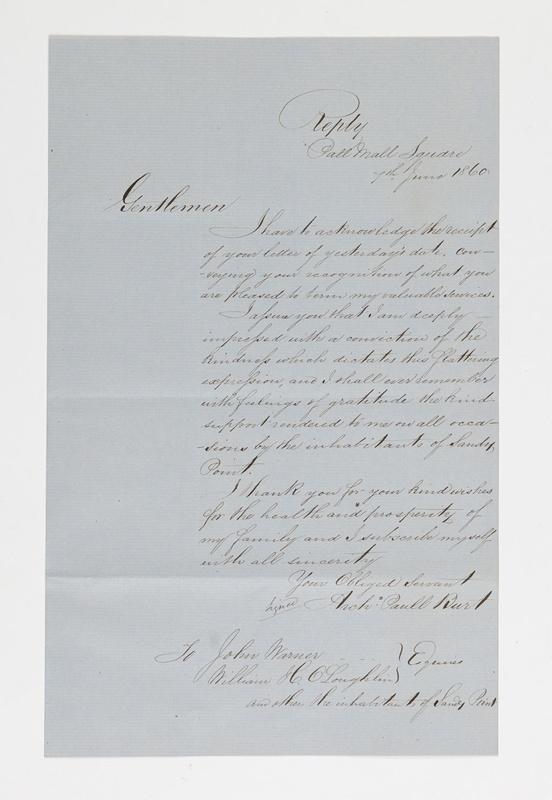 Reply
Pall Mall Square
7th June 1860
Gentlemen
I have to acknowledge the receipt
of your letter of yesterday's date, con-
veying your recognition of what you
are pleased to term my valuable services.
I assure you that I am deeply
impressed with a conviction of the
kindness which dictates this flattering
expression, and I shall ever remember
with feelings of gratitude the kind
support rendered to me on all occa-
-sions by the inhabitants of Sandy
Point.
I thank you for your kind wishes
for the health and prosperity of
my family and I subscribe myself
with all sincerity
Your Obliged Servant
signed Archd Paull Burt
To John Warner
William H. O'Loughlin } Esquires
and other the inhabitants of Sandy Point